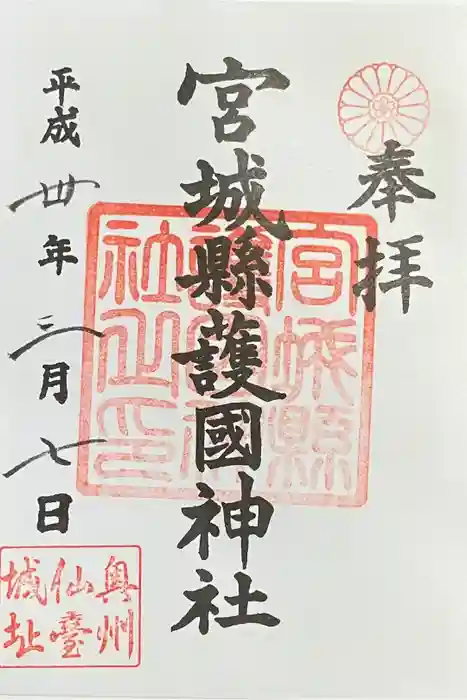 奉拝
宮城縣護國神社
宮城縣
護國神
社之印
平成丗年三月七日
奥州
仙臺
城址